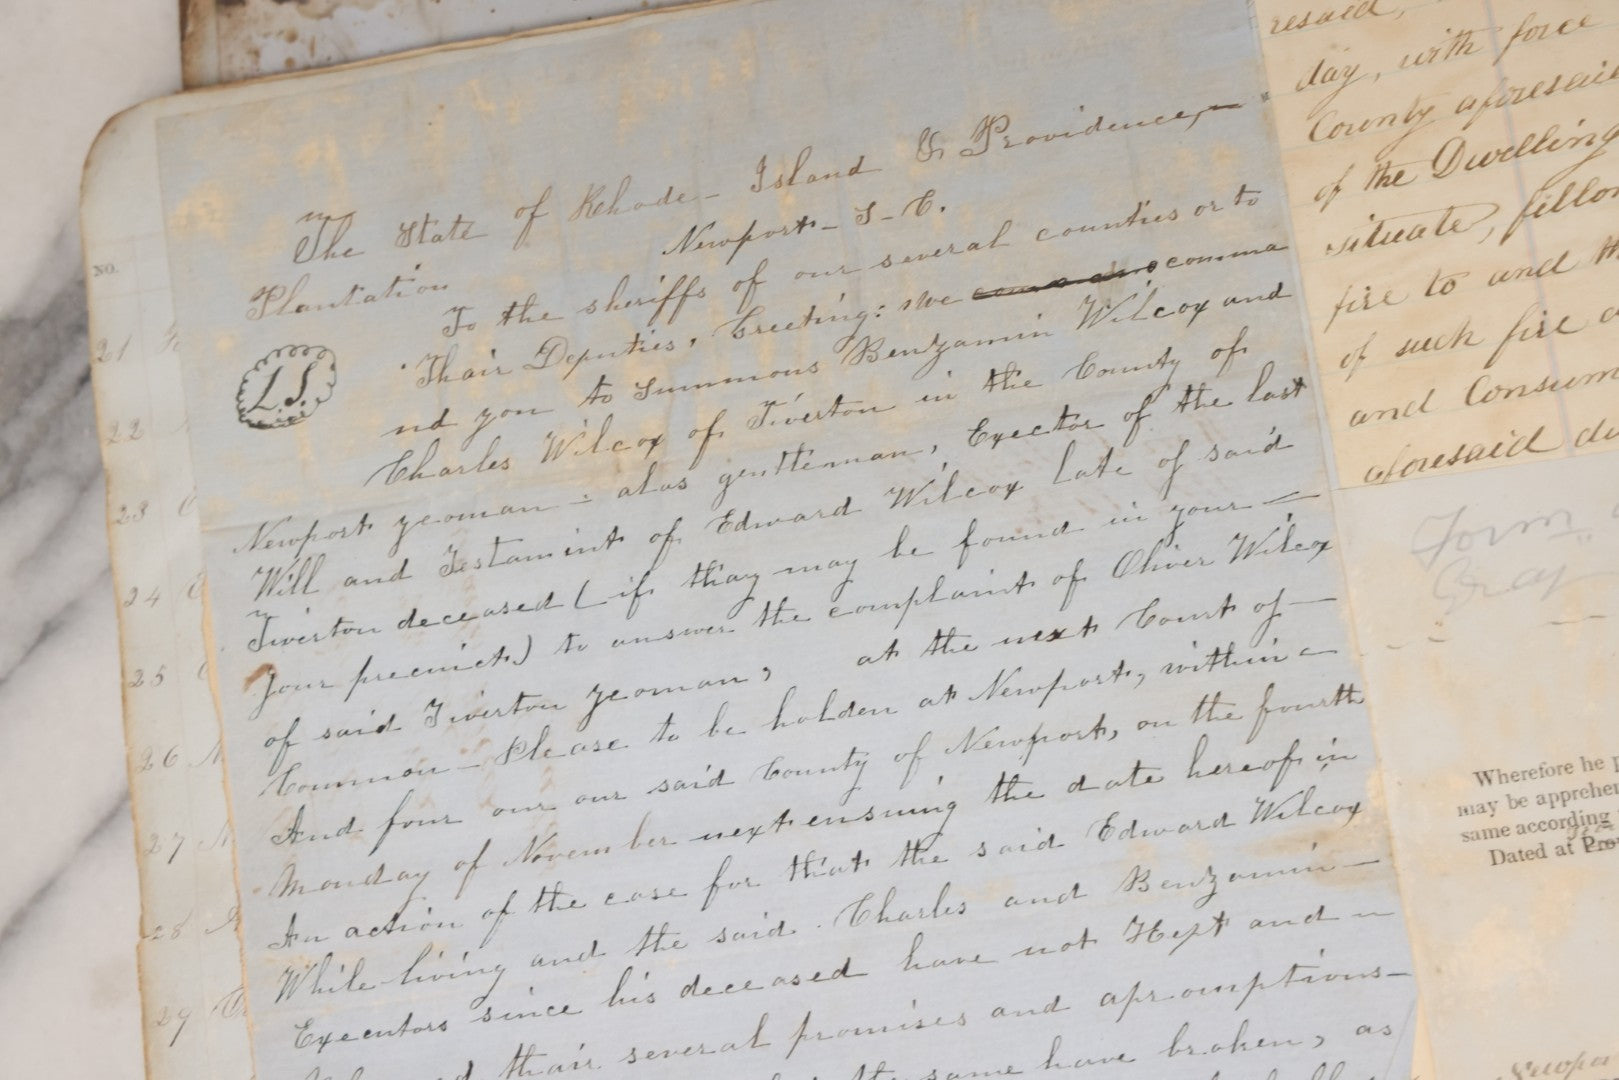 The State of Rhode - Island & Providence, -
Plantation Newport - S - C.
To the sheriffs of our several counties or to
Thair Deputies, Greeting: We comma
nd you to Summons Benzamin Wilcox and
Charles Wilcox of Tiverton in the County of
Newport yeoman - alas gentleman, Exector of the last
Will and Testamint of Edward Wilcox late of said
Tiverton deceased (if thay may be found in your -
your precinct) to answer the complaint of Oliver Wilcox
of said Tiverton yeoman, at the next Court of -
Common - Please to be holden at Newport, within -
And four our our said County of Newport, on the fourth
Monday of November next ensuing the date hereof in
An action of the case for that the said Edward Wilcox
While living and the said Charles and Benzamin -
Executors since his deceased have not Kept and
thair several promises and apromptions -
the same have broken, as
L.S.
NO.
21
22
23
24
25
26
27
28
29
resaid,
day, with force
County aforesaid
of the Dwelling
situate, fellon
fire to and th
of such fire a
and Consum
aforesaid du
Form
Gray
Wherefore he p
may be apprehen
same according
Dated at Pro
Newpo